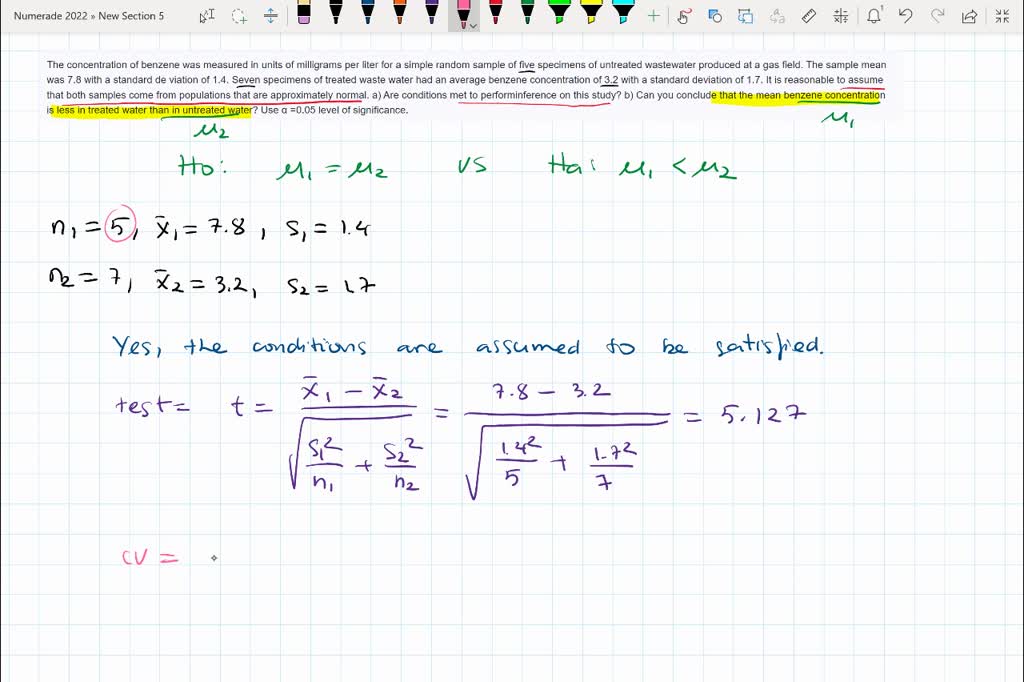 Numerade 2022 » New Section 5
The concentration of benzene was measured in units of milligrams per liter for a simple random sample of five specimens of untreated wastewater produced at a gas field. The sample mean
was 7.8 with a standard de viation of 1.4. Seven specimens of treated waste water had an average benzene concentration of 3.2 with a standard deviation of 1.7. It is reasonable to assume
that both samples come from populations that are approximately normal. a) Are conditions met to performinference on this study? b) Can you conclude that the mean benzene concentration
is less in treated water than in untreated water? Use α =0.05 level of significance.
μ1
μ2
Ho: μ1 = μ2 vs Ha: μ1 < μ2
n1 = 5, x̄1 = 7.8, S1 = 1.4
n2 = 7, x̄2 = 3.2, S2 = 1.7
Yes, the conditions are assumed to be satisfied.
test = t = (x̄1 − x̄2) / √(S1²/n1 + S2²/n2) = (7.8 − 3.2) / √(1.4²/5 + 1.7²/7) = 5.127
CV =